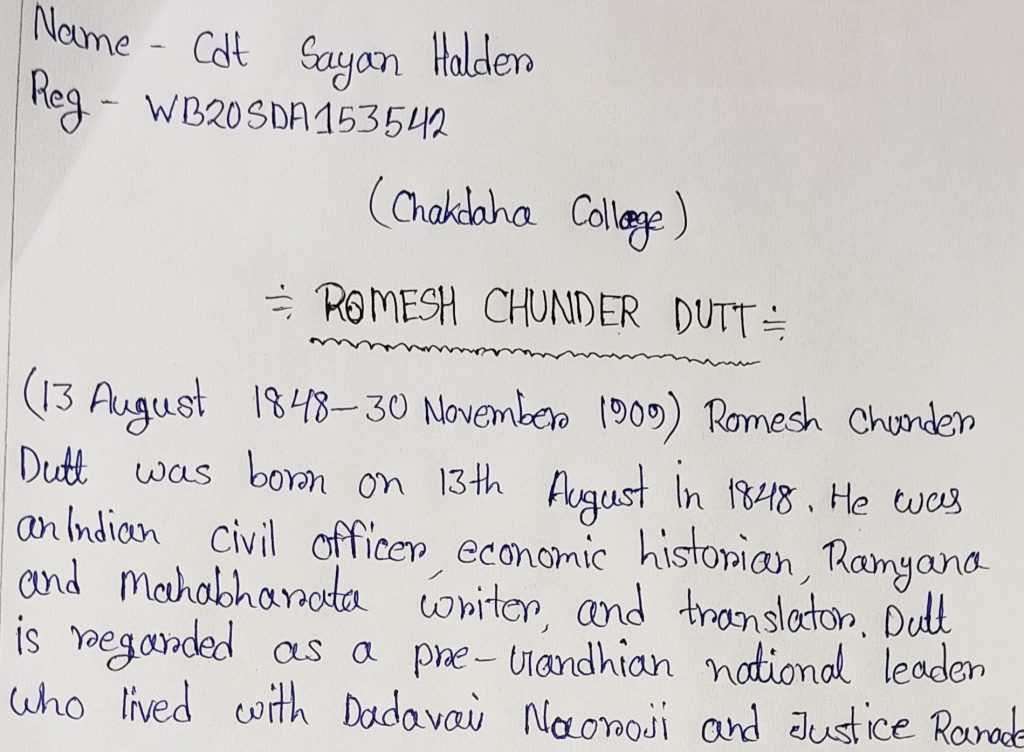 Name - Cdt Sayan Halder
Reg - WB20SDA153542
(Chakdaha College)
÷ ROMESH CHUNDER DUTT ÷
(13 August 1848-30 November 1909) Romesh Chunder
Dutt was born on 13th August in 1848. He was
an Indian civil officer, economic historian, Ramyana
and Mahabharata writer, and translator. Dutt
is regarded as a pre-Gandhian national leader
who lived with Dadavai Naoroji and Justice Ranade